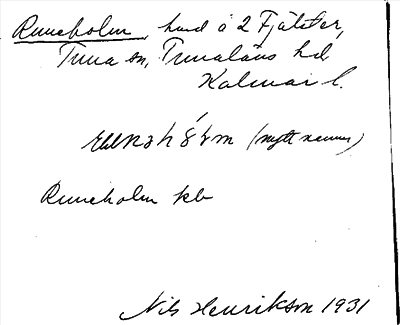 Runeholm, hmd å 2 Fjälster,
Tuna sn, Tunaläns hd
Kalmar l.
(nytt namn)
Runeholm kb
Nils Henrikson 1931